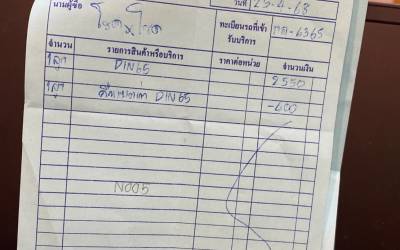 นามผู้ซื้อ
วันที่ 25-4-68
ทะเบียนรถที่เข้ารับบริการ
-6365
จำนวน รายการสินค้าหรือบริการ ราคาต่อหน่วย จำนวนเงิน
1ลูก DIN65 2550
1ลูก DIN65 -600
N005